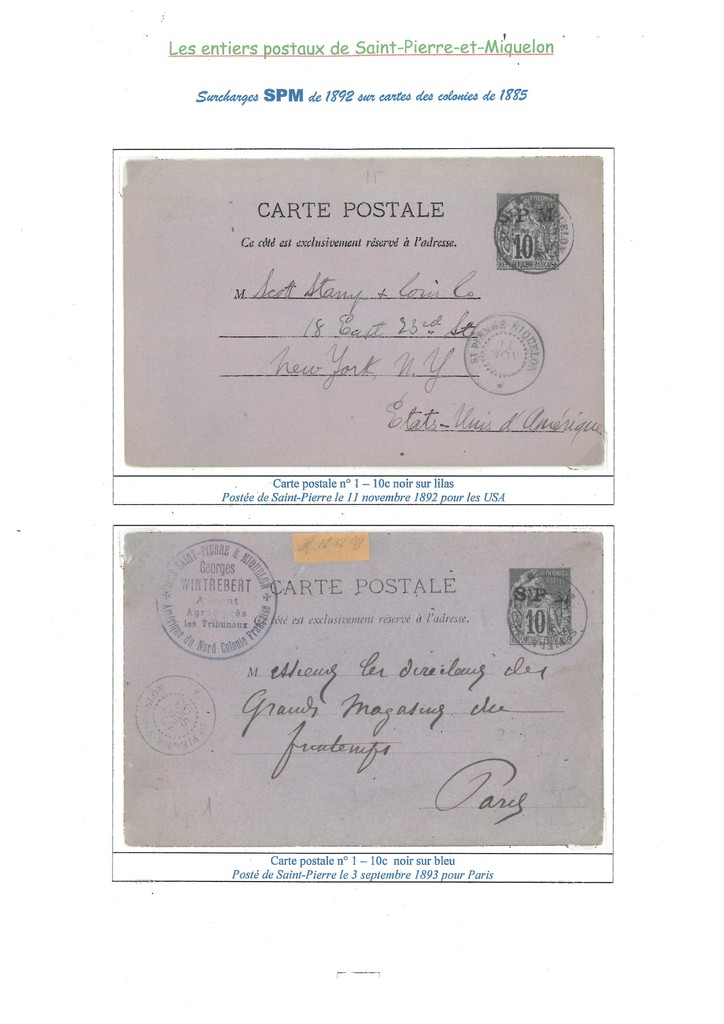 Les entiers postaux de Saint-Pierre-et-Miquelon
Surcharges SPM de 1892 sur cartes des colonies de 1885
15
CARTE POSTALE
Ce côté est exclusivement réservé à l'adresse.
S P M
10
RÉPUBLIQUE FRANÇAISE
M Scott Stamp & Coin Co
18 East 23rd St
New York, N. Y
États-Unis d'Amérique
ST PIERRE MIQUELON
11
NOV
Carte postale n° 1 – 10c noir sur lilas
Postée de Saint-Pierre le 11 novembre 1892 pour les USA
SAINT-PIERRE & MIQUELON
Georges
WINTREBERT
Agent
Agréé près
les Tribunaux
Amérique du Nord Colonie Française
12 12 93
CARTE POSTALE
Ce côté est exclusivement réservé à l'adresse.
S P M
10
Messieurs les directeurs des
Grands Magasins du
printemps
Paris
1
Carte postale n° 1 – 10c noir sur bleu
Posté de Saint-Pierre le 3 septembre 1893 pour Paris